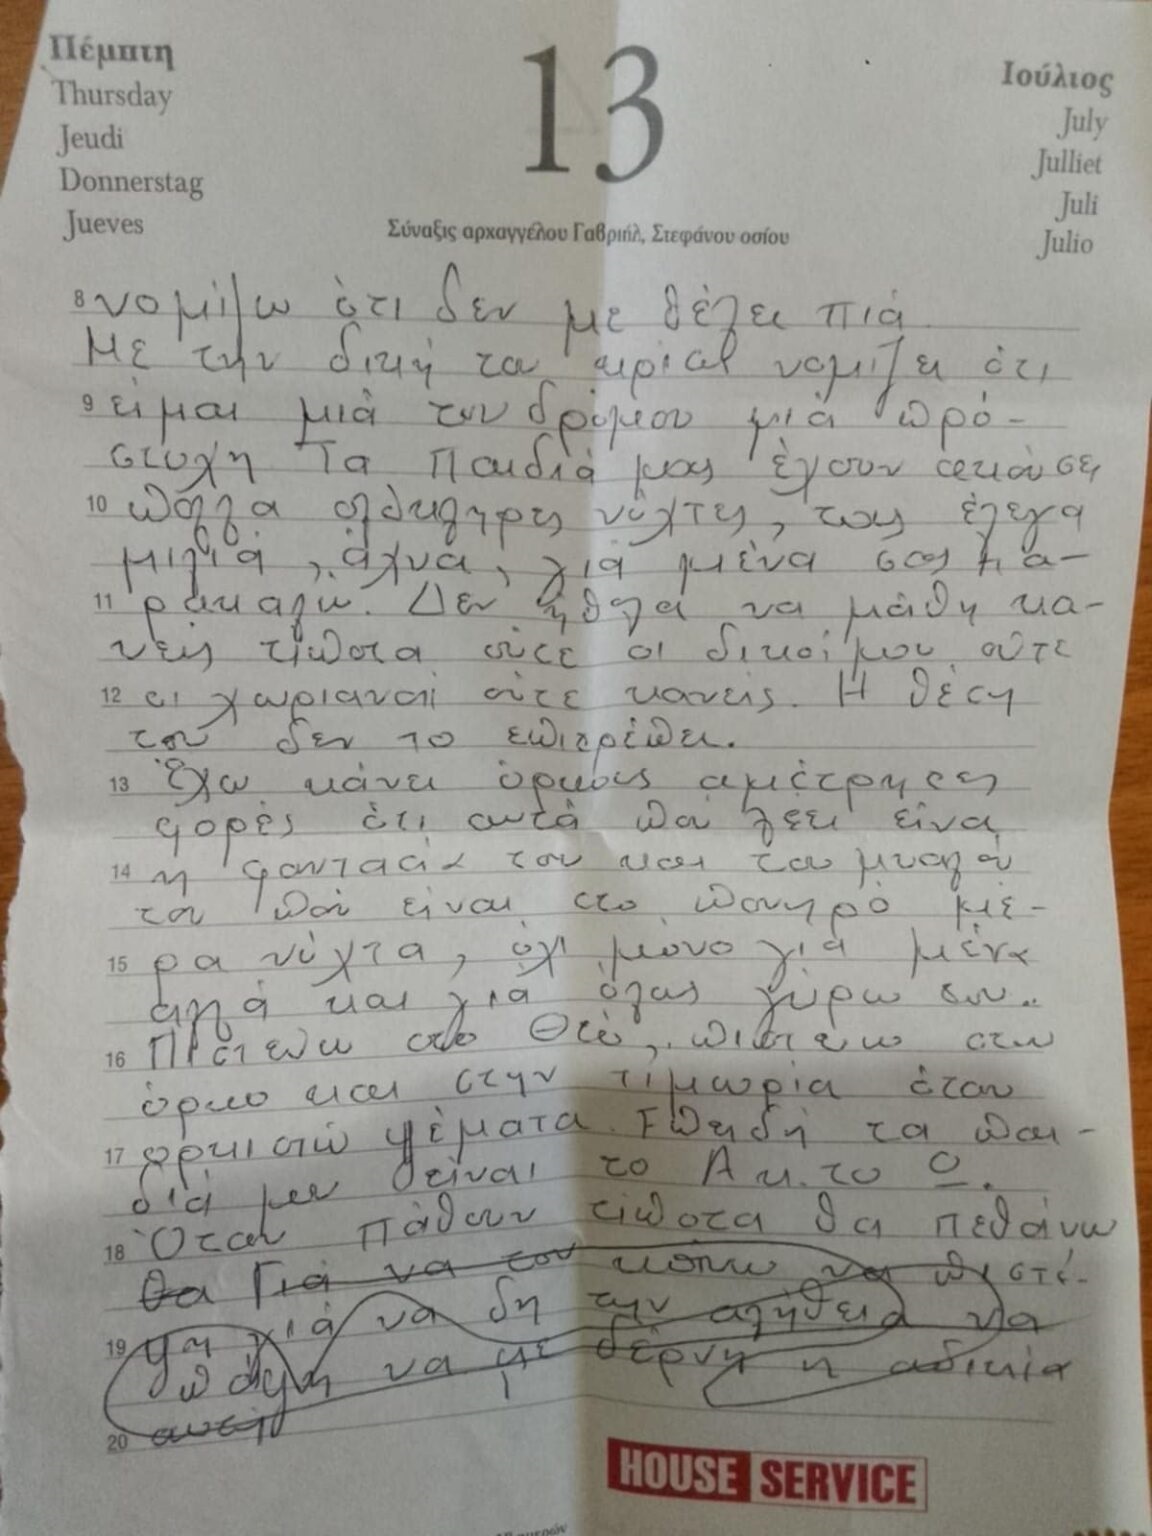 Πέμπτη
Thursday
Jeudi
Donnerstag
Jueves
13
Ιούλιος
July
Julliet
Juli
Julio
Σύναξις αρχαγγέλου Γαβριήλ, Στεφάνου οσίου
8 νομίζω ότι δεν με θέλει πιά
Με την δική του κρίση νομίζει ότι
9 είμαι μιά του δρόμου μιά πρό-
στυχη Τα παιδιά μας έχουν ακούσει
10 πολλά ολόκληρες νύχτες, τους έλεγα
μιλιά, άχνα, γιά μένα σας πα-
11 ρακαλώ. Δεν ήθελα να μάθη κα-
νείς τίποτα ούτε οι δικοί μου ούτε
12 οι χωριανοί ούτε κανείς. Η θέση
του δεν το επιτρέπει.
13 Έχω κάνει όρκους αμέτρητες
φορές ότι αυτά που λέει είνα
14 η φαντασία του και του μυαλού
του που είναι στο πονηρό μέ-
15 ρα νύχτα, όχι μόνο γιά μένα
αλλά και γιά όλους γύρω του..
16 Πιστεύω στο Θεό, πιστεύω στον
όρκο και στην τιμωρία όταν
17 ορκιστώ ψέματα. Επειδή τα παι-
διά μου είναι το Α κ. το Ω.
18 Όταν πάθουν τίποτα θα πεθάνω
θα Γιά να τον κάνω να πιστέ-
19 ψη γιά να δη την αλήθεια να
πάψη να με δέρνη η αδικία
20 αυτή
HOUSE SERVICE